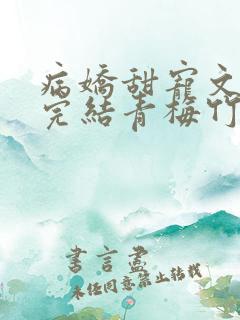 病嬌甜寵文
完結青梅竹
書言盡
未任同意禁止转载